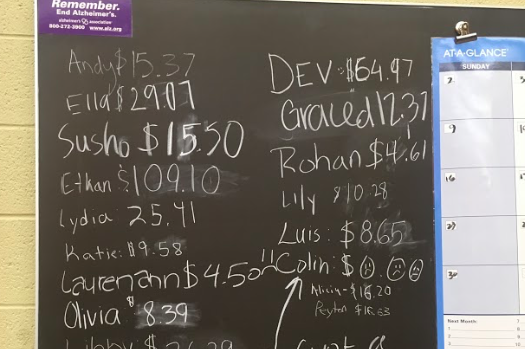 Remember.
End Alzheimer's.
alzheimer's association
800-272-3900 www.alz.org
Andy $15.37
Ella $29.07
Susho $15.50
Ethan $109.10
Lydia: 25.41
Katie: $9.58
Laurenann $4.50
Olivia $8.39
Libby
DEV: $64.97
Graced 12.37
Rohan $4.61
Lily $10.28
Luis: $8.65
Colin: $
Alicia - $16.20
Peyton $16.63
AT-A-GLANCE
SUNDAY
2
9
16
30
Next Month: